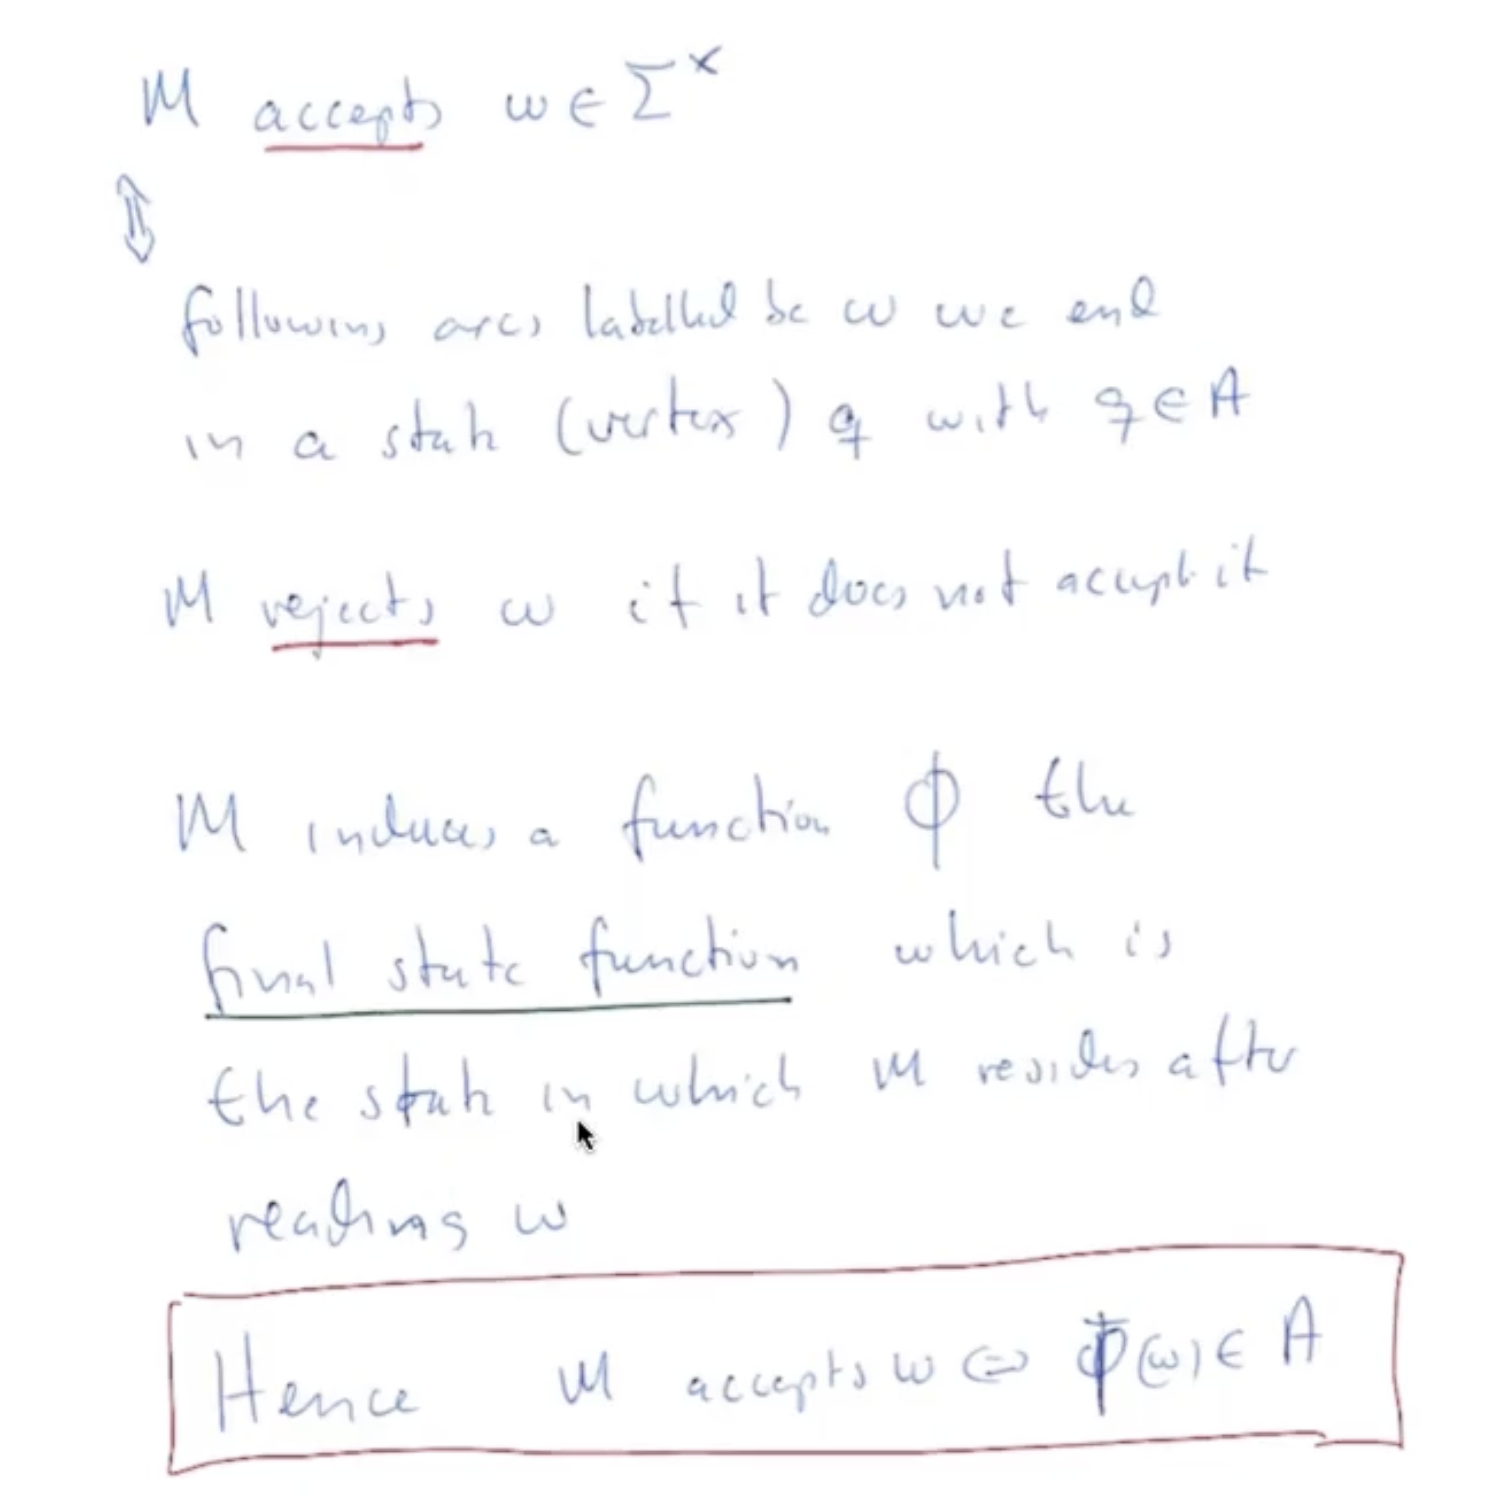 M accepts w ∈ Σ*
⇕
following arcs labelled be w we end
in a state (vertex) q with q ∈ A
M rejects w if it does not accept it
M induces a function ϕ the
final state function which is
the state in which M resides after
reading w
Hence M accepts w ⇔ ϕ(w) ∈ A